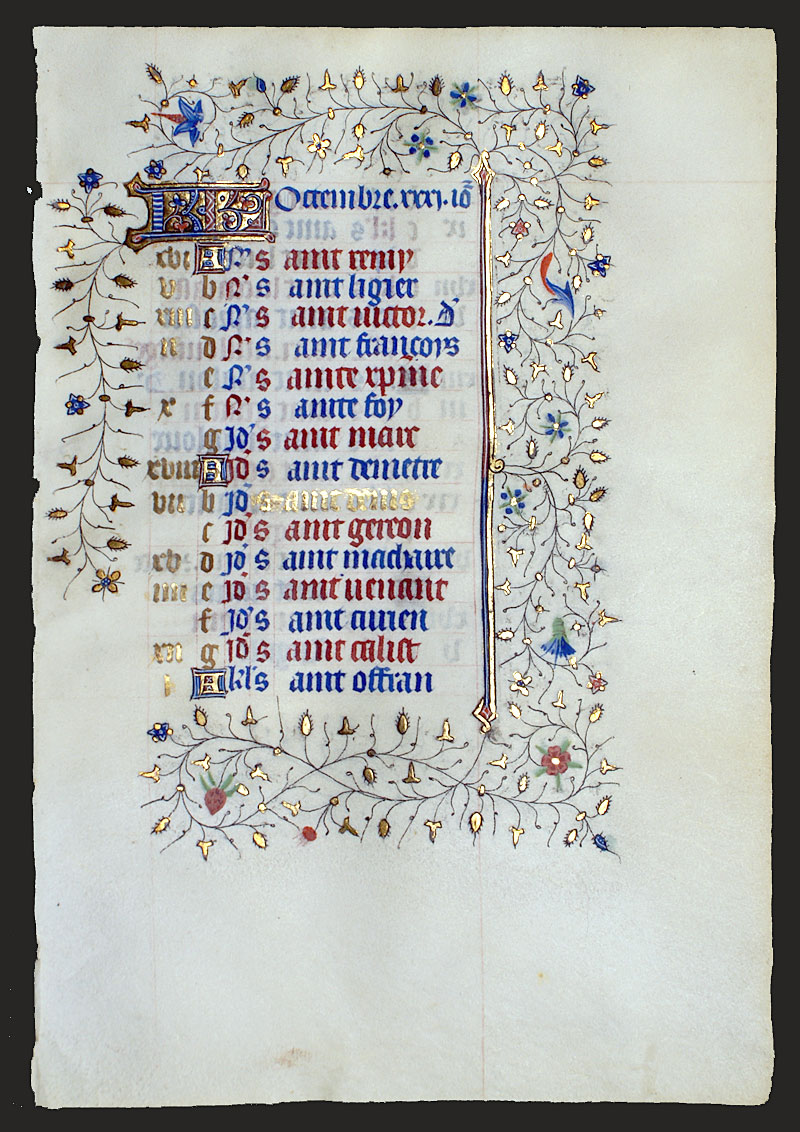 KL Octembre.xxxi.io
xvi A N S aint remy
v b N S aint ligier
xiii c N S aint victor. D
ii d N S aint françoys
e N S ainte xpine
x f N S ainte foy
g Jd S aint marc
xviii A Jd S aint demetre
vii b Jd S aint denis
c Jd S aint gereon
xv d Jd S aint machaire
iiii e Jd S aint venant
f Jd S aint
xii g Jd S aint calist
i A kl S aint offran